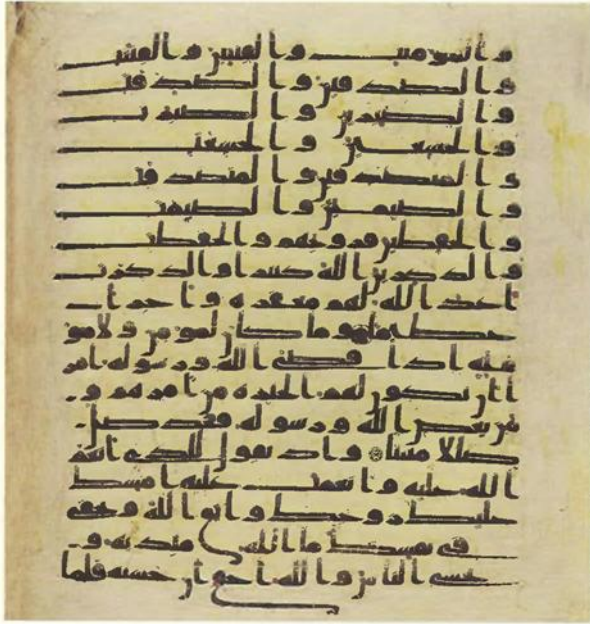 والمومنت والقنتين والقنت
والصدقين والصدقت
والصبرين والصبرت
والخشعين والخشعت
والمتصدقين والمتصدقت
والصيمين والصيمت
والحفظين فروجهم والحفظت
والذكرين الله كثيرا والذكرت
اعد الله لهم مغفرة واجرا
عظيما وما كان لمومن ولا مو
منة اذا قضى الله ورسوله امر
ا ان يكون لهم الخيرة من امرهم و
من يعص الله ورسوله فقد ضل
ضللا مبينا واذ تقول للذي انعم
الله عليه وانعمت عليه امسك
عليك زوجك واتق الله وتخفي
في نفسك ما الله مبديه و
تخشى الناس والله احق ان تخشه فلما